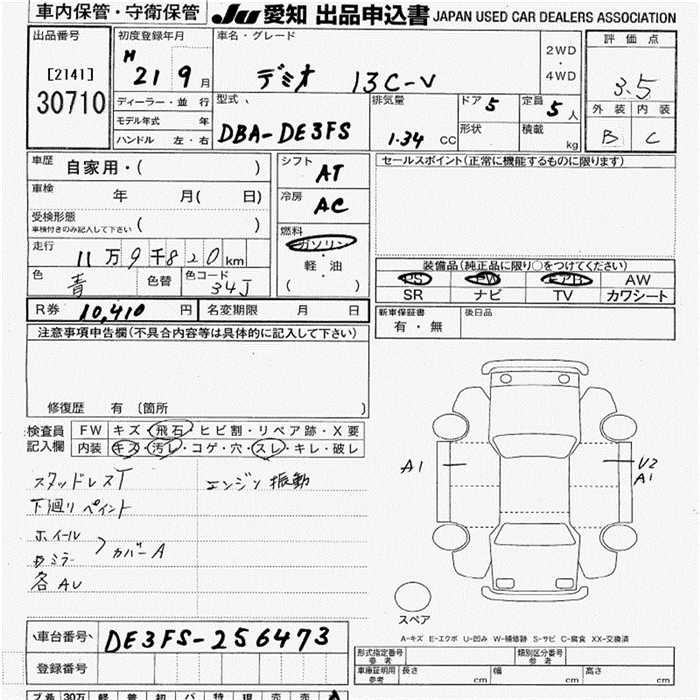 車内保管・守衛保管 JU 愛知 出品申込書 JAPAN USED CAR DEALERS ASSOCIATION
出品番号 [2141] 30710
初度登録年月 H 21 9 月
車名・グレード デミオ 13C-V
2WD ・ 4WD
評価点 3.5
外装 内装
B C
ディーラー・並行
モデル年式 年
ハンドル 左・右
型式 DBA-DE3FS
排気量 1.34 CC
ドア 5
形状
定員 5 人
積載 kg
車歴 自家用・( )
車検 年 月( 日)
受検形態
車検付きのみ記入して下さい ( )
走行 11万9千820km
色 青 色替 色コード 34J
シフト AT
冷房 AC
燃料 ガソリン・軽・油
( )
セールスポイント(正常に機能するものに限ります)
装備品(純正品に限り○をつけてください)
PS PW エアB AW
SR ナビ TV カワシート
R券 10,410 円 名変期限 月 日
新車保証書 有・無 後日品
注意事項申告欄(不具合内容等は具体的に記入して下さい)
修復歴 有 〔箇所 〕
検査員記入欄
FW キズ・飛石・ヒビ割・リペア跡・X要
内装 キズ・汚レ・コゲ・穴・スレ・キレ・破レ
スタッドレスT
エンジン振動
下廻りペイント
ホイール
ミラー
カバーA
各AU
A1
U2
A1
スペア
A-キズ E-エクボ U-凹み W-補修跡 S-サビ C-腐食 XX-交換済
車台番号 DE3FS-256473
登録番号
型式指定番号 参考 類別区分番号 参考
車庫証明用 参考 長さ cm 幅 cm 高さ cm